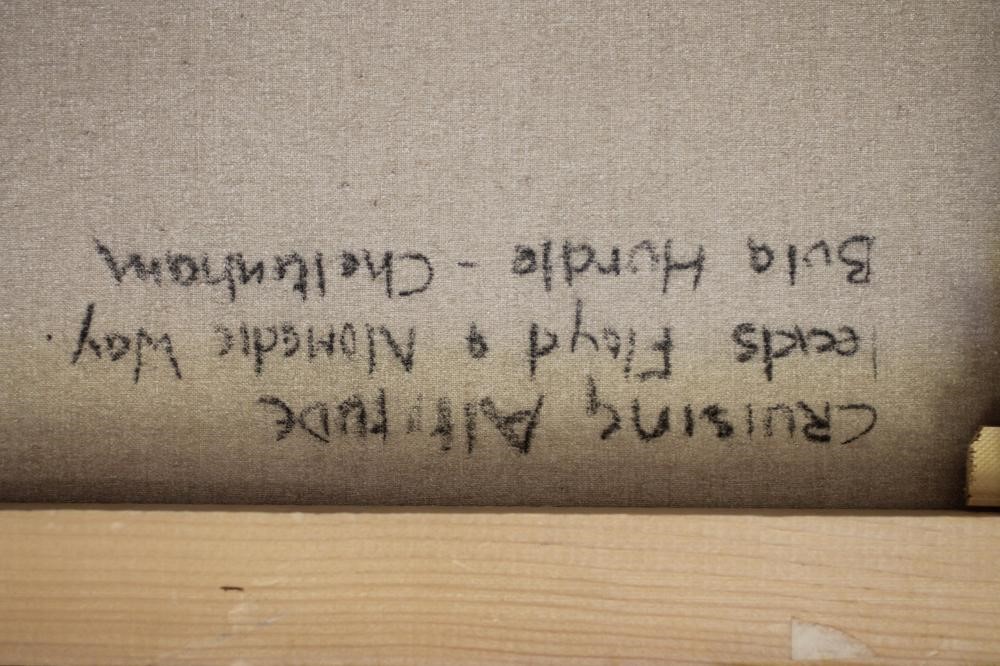 CRUISING ALTITUDE
leads Floyd & Nomadic Way.
Bula Hurdle - Cheltenham